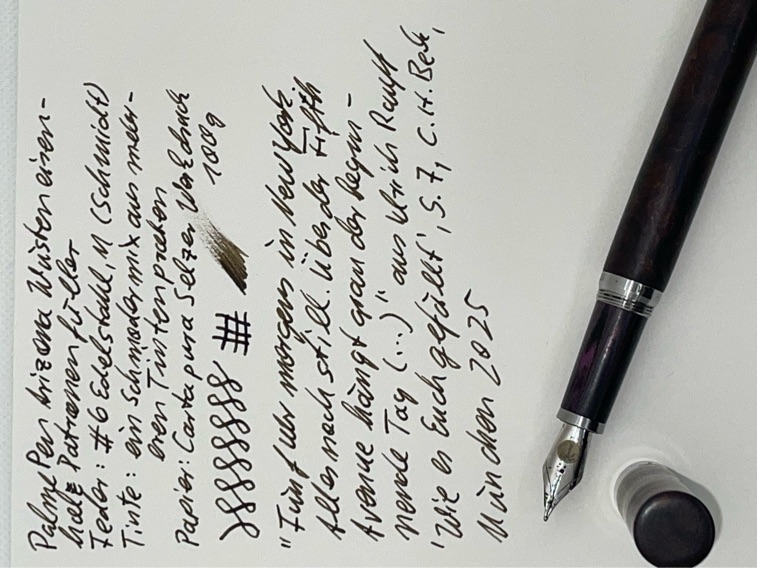 Palme Pen Arizona Wüsteneisen-
holz Patronenfüller
Feder: #6 Edelstahl, M (Schmidt)
Tinte: ein Schmodermix aus mehr-
eren Tintenproben
Papier: Carta pura Selzer Werkdruck
100g
#
"Fünf Uhr morgens in New York.
Alles noch still. Über der Fifth
Avenue hängt grau der begin-
nende Tag (...)" aus Ulrich Raulff
'Wie es Euch gefällt', S. 7, C.H. Beck,
München 2025